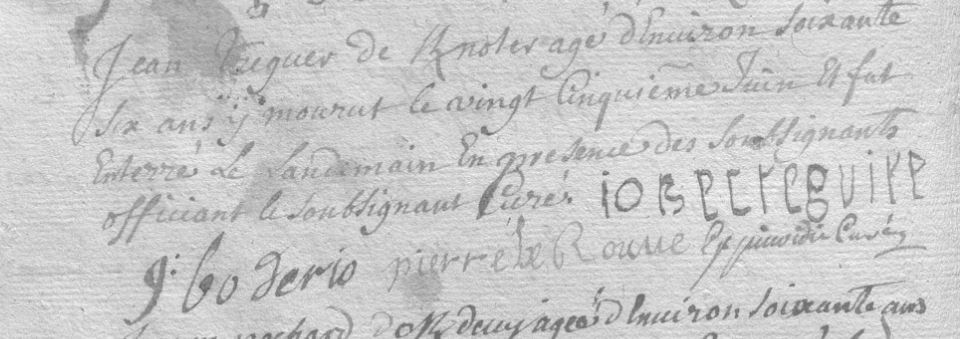 Jean Treguer de Knoter agé d'Enuiron Soixante
Six ans y mourut le vingt Cinquiême Juin Et fut
Enterré Le Landemain En presence des Soubsignants
officiant le Soubsignant Curé. io Bec treguire
g: bo derio pierre le Roune Curé
d'Enuiron Soixante ans